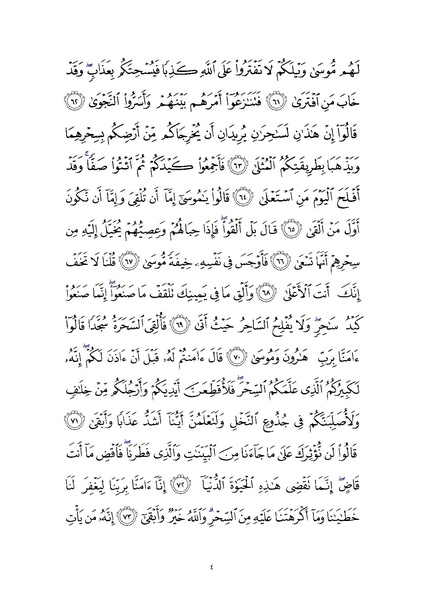 لَهُم مُّوسَىٰ وَيْلَكُمْ لَا تَفْتَرُوا۟ عَلَى ٱللَّهِ كَذِبًا فَيُسْحِتَكُم بِعَذَابٍ ۖ وَقَدْ
خَابَ مَنِ ٱفْتَرَىٰ ۝٦١ فَتَنَـٰزَعُوٓا۟ أَمْرَهُم بَيْنَهُمْ وَأَسَرُّوا۟ ٱلنَّجْوَىٰ ۝٦٢
قَالُوٓا۟ إِنْ هَـٰذَٰنِ لَسَـٰحِرَٰنِ يُرِيدَانِ أَن يُخْرِجَاكُم مِّنْ أَرْضِكُم بِسِحْرِهِمَا
وَيَذْهَبَا بِطَرِيقَتِكُمُ ٱلْمُثْلَىٰ ۝٦٣ فَأَجْمِعُوا۟ كَيْدَكُمْ ثُمَّ ٱئْتُوا۟ صَفًّا ۚ وَقَدْ
أَفْلَحَ ٱلْيَوْمَ مَنِ ٱسْتَعْلَىٰ ۝٦٤ قَالُوا۟ يَـٰمُوسَىٰٓ إِمَّآ أَن تُلْقِىَ وَإِمَّآ أَن نَّكُونَ
أَوَّلَ مَنْ أَلْقَىٰ ۝٦٥ قَالَ بَلْ أَلْقُوا۟ ۖ فَإِذَا حِبَالُهُمْ وَعِصِيُّهُمْ يُخَيَّلُ إِلَيْهِ مِن
سِحْرِهِمْ أَنَّهَا تَسْعَىٰ ۝٦٦ فَأَوْجَسَ فِى نَفْسِهِۦ خِيفَةً مُّوسَىٰ ۝٦٧ قُلْنَا لَا تَخَفْ
إِنَّكَ أَنتَ ٱلْأَعْلَىٰ ۝٦٨ وَأَلْقِ مَا فِى يَمِينِكَ تَلْقَفْ مَا صَنَعُوٓا۟ ۖ إِنَّمَا صَنَعُوا۟
كَيْدُ سَـٰحِرٍ ۖ وَلَا يُفْلِحُ ٱلسَّاحِرُ حَيْثُ أَتَىٰ ۝٦٩ فَأُلْقِىَ ٱلسَّحَرَةُ سُجَّدًا قَالُوٓا۟
ءَامَنَّا بِرَبِّ هَـٰرُونَ وَمُوسَىٰ ۝٧٠ قَالَ ءَامَنتُمْ لَهُۥ قَبْلَ أَنْ ءَاذَنَ لَكُمْ ۖ إِنَّهُۥ
لَكَبِيرُكُمُ ٱلَّذِى عَلَّمَكُمُ ٱلسِّحْرَ ۖ فَلَأُقَطِّعَنَّ أَيْدِيَكُمْ وَأَرْجُلَكُم مِّنْ خِلَـٰفٍ
وَلَأُصَلِّبَنَّكُمْ فِى جُذُوعِ ٱلنَّخْلِ وَلَتَعْلَمُنَّ أَيُّنَآ أَشَدُّ عَذَابًا وَأَبْقَىٰ ۝٧١
قَالُوا۟ لَن نُّؤْثِرَكَ عَلَىٰ مَا جَآءَنَا مِنَ ٱلْبَيِّنَـٰتِ وَٱلَّذِى فَطَرَنَا ۖ فَٱقْضِ مَآ أَنتَ
قَاضٍ ۖ إِنَّمَا تَقْضِى هَـٰذِهِ ٱلْحَيَوٰةَ ٱلدُّنْيَآ ۝٧٢ إِنَّآ ءَامَنَّا بِرَبِّنَا لِيَغْفِرَ لَنَا
خَطَـٰيَـٰنَا وَمَآ أَكْرَهْتَنَا عَلَيْهِ مِنَ ٱلسِّحْرِ ۗ وَٱللَّهُ خَيْرٌ وَأَبْقَىٰٓ ۝٧٣ إِنَّهُۥ مَن يَأْتِ
٤